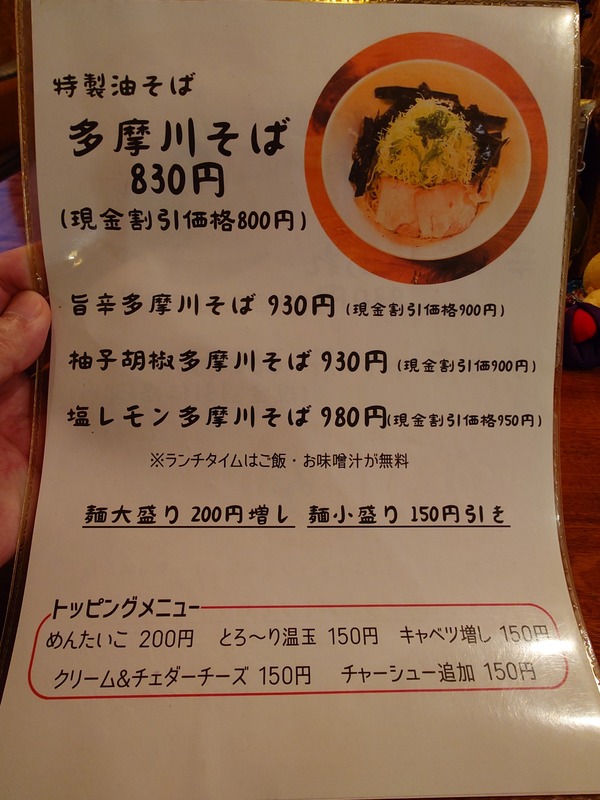 特製油そば
多摩川そば
830円
(現金割引価格800円)
旨辛多摩川そば 930円 (現金割引価格900円)
柚子胡椒多摩川そば 930円 (現金割引価900円)
塩レモン多摩川そば 980円(現金割引価格950円)
※ランチタイムはご飯・お味噌汁が無料
麺大盛り 200円増し 麺小盛り 150円引き
トッピングメニュー
めんたいこ 200円 とろ～り温玉 150円 キャベツ増し 150円
クリーム&チェダーチーズ 150円 チャーシュー追加 150円